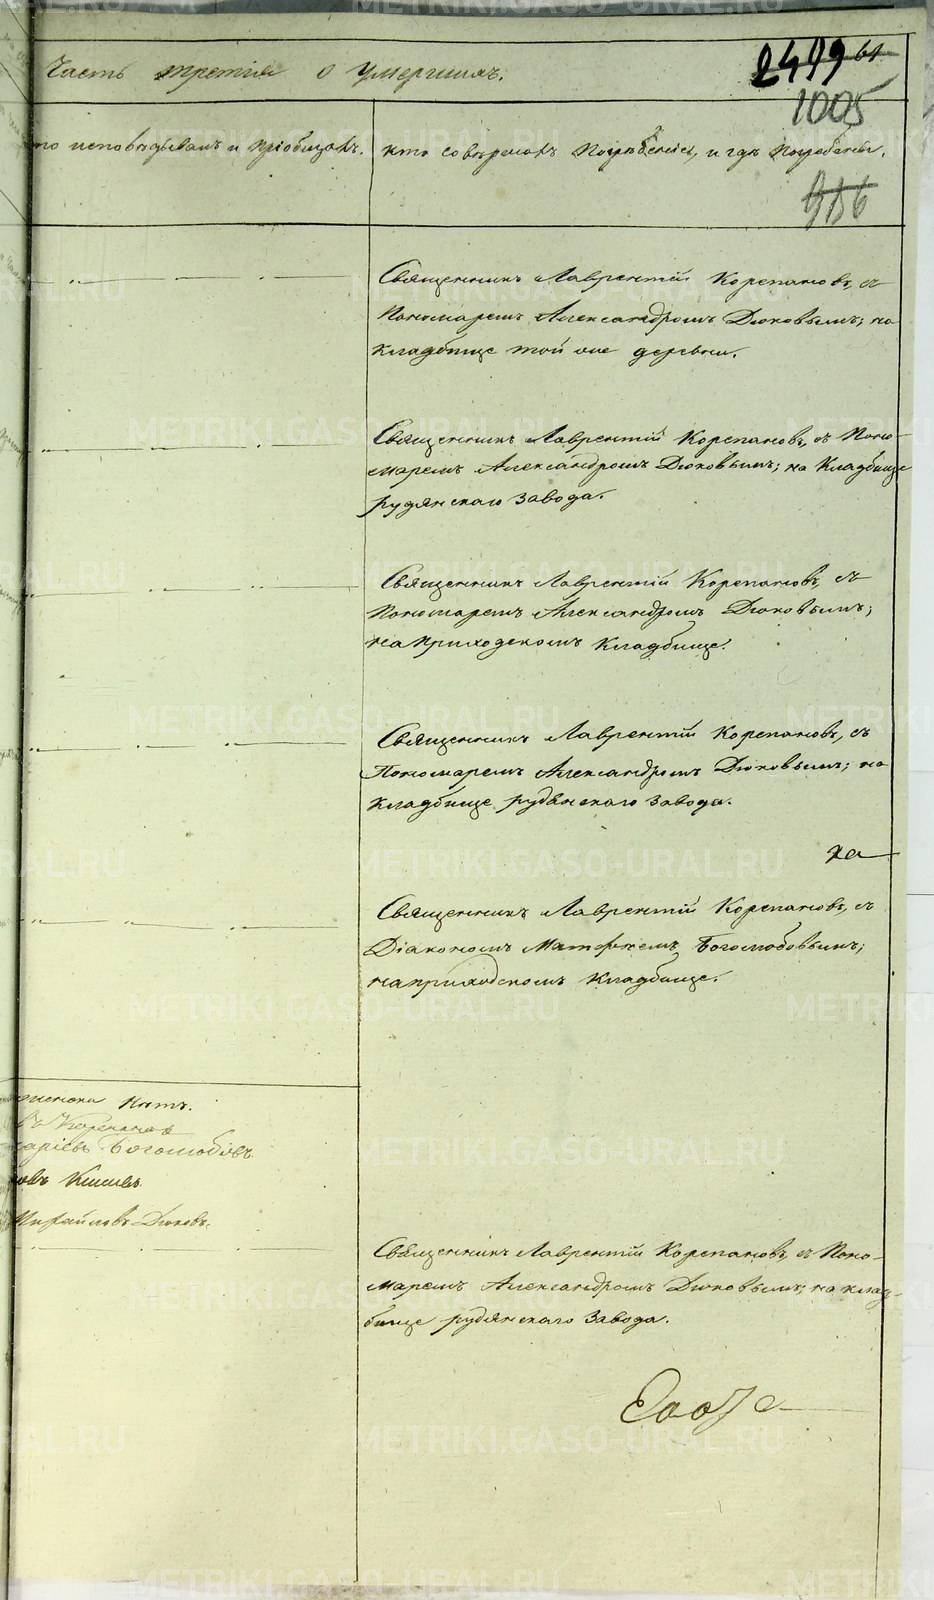 Часть третія о умершихъ.
2499 61
1005
то исповѣдывалъ и пріобщалъ.
кто совершалъ погребеніе, и гдѣ погребены.
Священникъ Лаврентій Корепановъ, съ
Пономаремъ Александромъ Дюковымъ; на
кладбище той же деревни.
Священникъ Лаврентій Корепановъ, съ Поно-
маремъ Александромъ Дюковымъ; на Кладбище
рудянскаго завода.
Священникъ Лаврентій Корепановъ, съ
Пономаремъ Александромъ Дюковымъ;
на приходскомъ Кладбище.
Священникъ Лаврентій Корепановъ, съ
Пономаремъ Александромъ Дюковымъ; на
кладбище рудянскаго завода.
ка
Священникъ Лаврентій Корепановъ, съ
Діакономъ Матфѣемъ Боголюбовымъ;
на приходскомъ Кладбище.
нътъ.
Корепановъ
Боголюбовъ
Михайловъ Дюковъ.
Священникъ Лаврентій Корепановъ, съ Поно-
маремъ Александромъ Дюковымъ; на клад-
бище рудянскаго завода.
METRIKI.GASO-URAL.RU